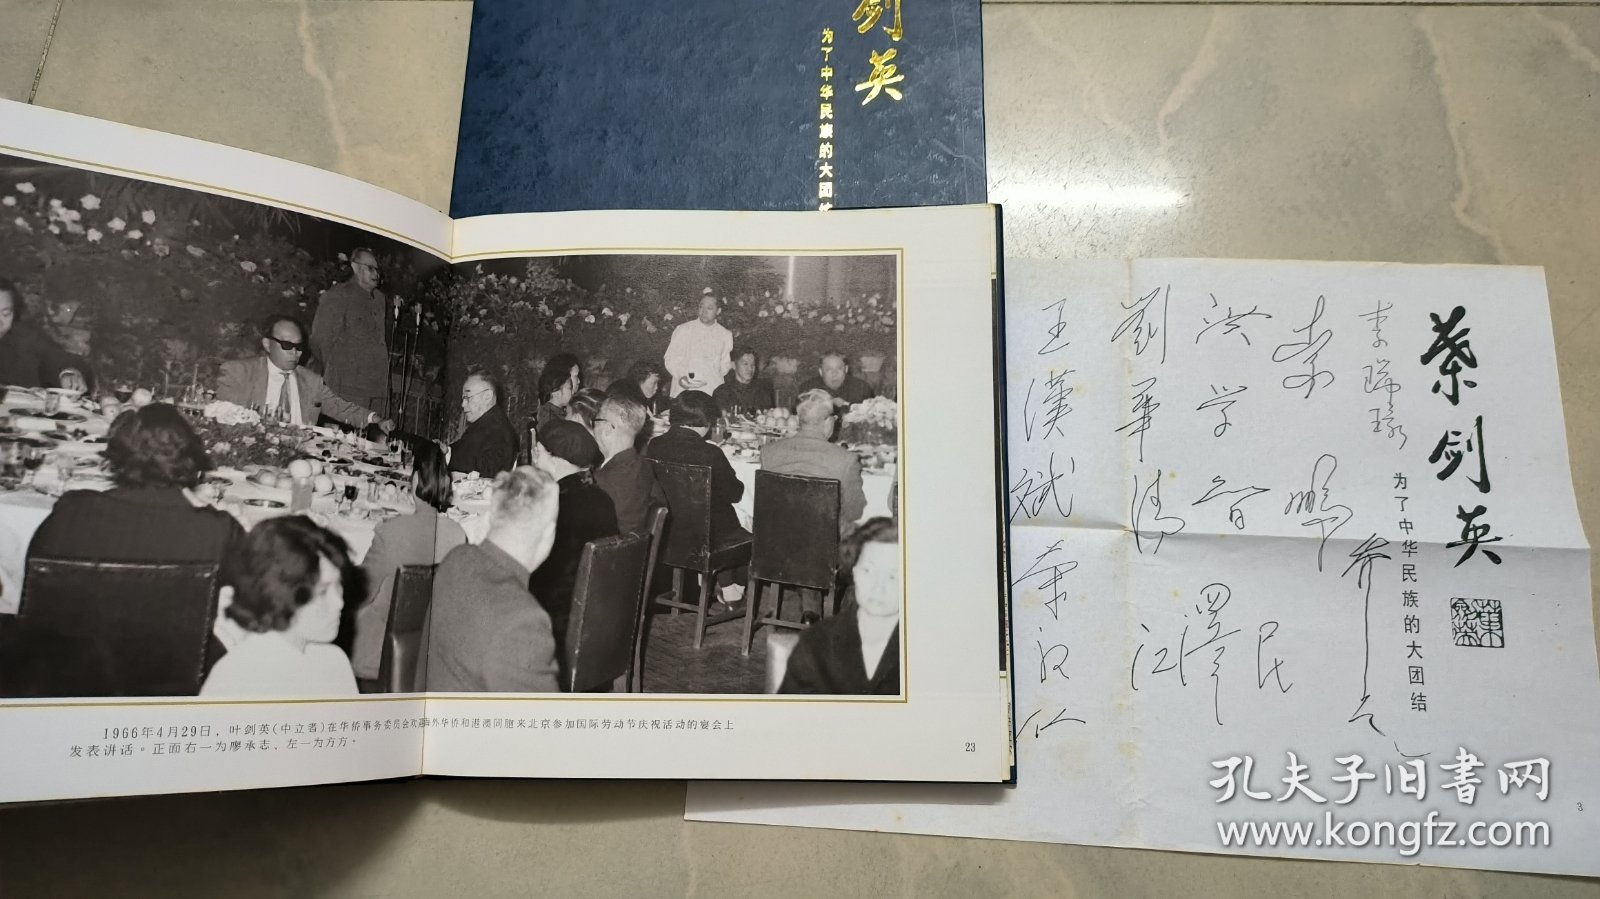 剑英
为了中华民族的大团结
1966年4月29日，叶剑英(中立者)在华侨事务委员会欢迎海外华侨和港澳同胞来北京参加国际劳动节庆祝活动的宴会上
发表讲话。正面右一为廖承志、左一为方方。
23
葉剑英
为了中华民族的大团结
李瑞环
李鹏
乔石
洪学智
江泽民
劉華清
王漢斌
荣毅仁
3
孔夫子旧书网
www.kongfz.com